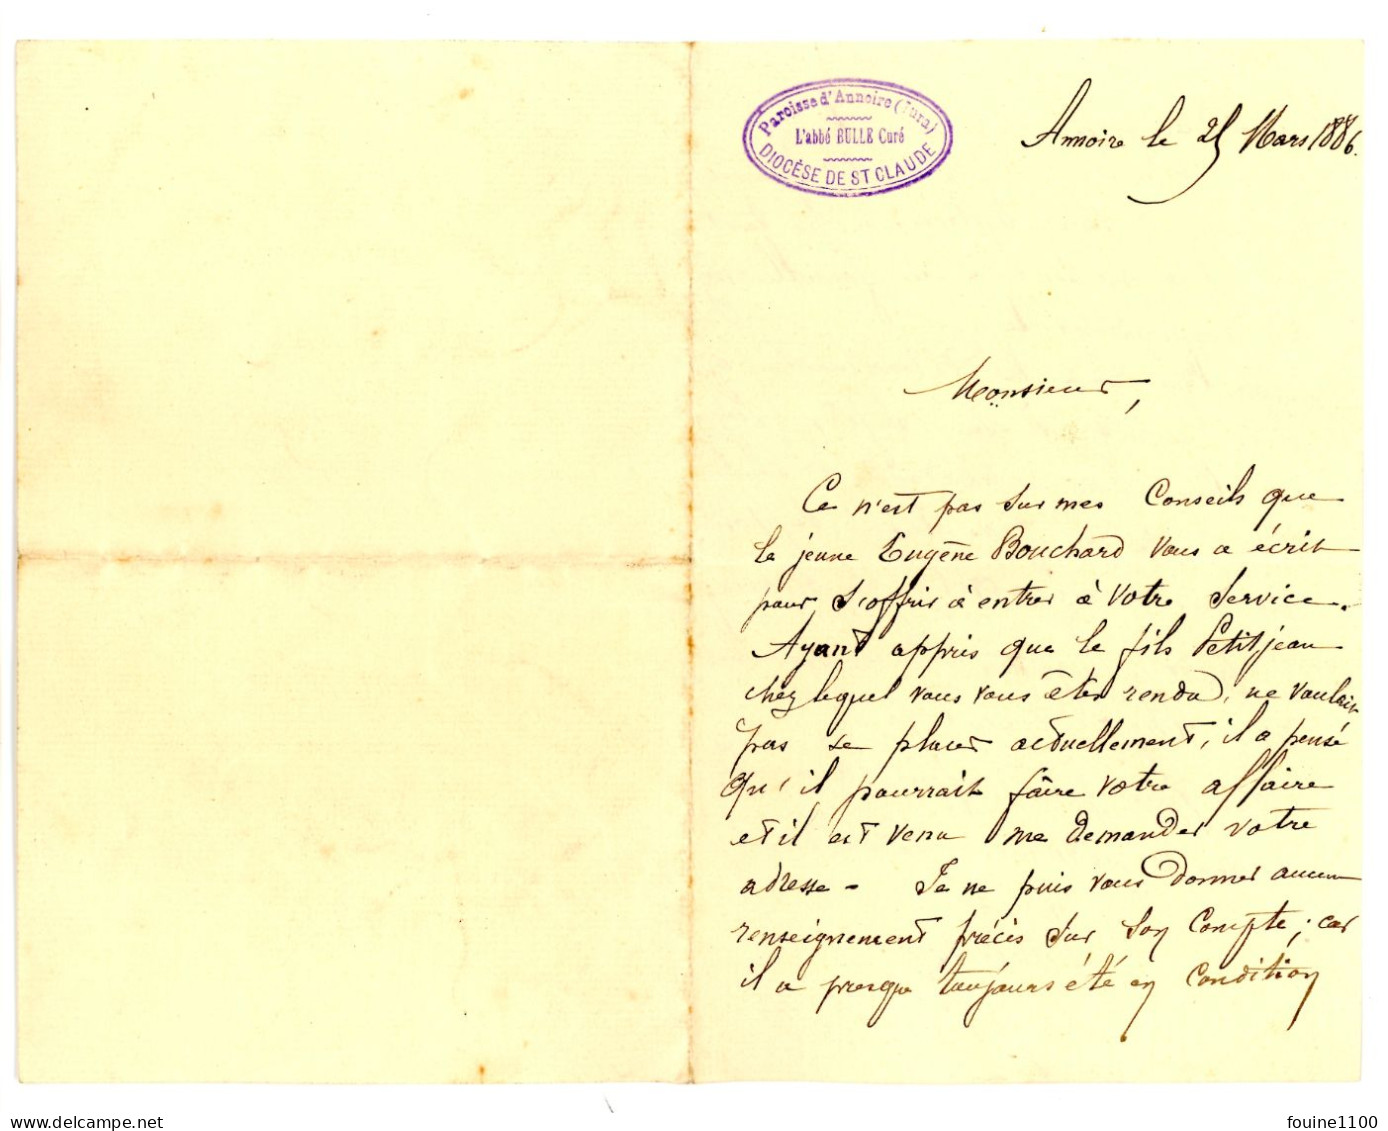 Paroisse d'Annoire (Jura)
L'abbé BULLE Curé
DIOCÈSE DE ST CLAUDE
Annoire le 25 Mars 1886.
Monsieur,
Ce n'est pas sur mes Conseils que
le jeune Eugène Bouchard vous a écrit
pour s'offrir à entrer à votre service.
Ayant appris que le fils Petitjean
chez lequel vous vous êtes rendu, ne voulait
pas se placer actuellement, il a pensé
qu'il pourrait faire votre affaire
et il est venu me demander votre
adresse - Je ne puis vous donner aucun
renseignement précis sur son Compte; car
il a presque toujours été en Condition
www.delcampe.net
fouine1100